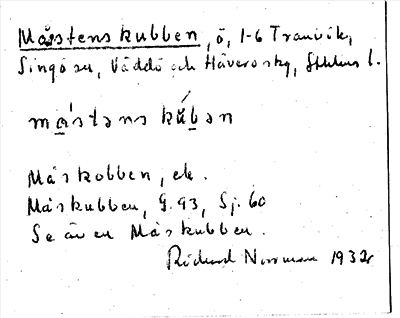 Måsstenskubben, ö, 1-6 Tranvik,
Singö sn, Väddö och Häverö skg, Sthlms l.
måstəns kúbən
Måskobben, ek.
Måskubben, G. 93, Sj. 60
Se även Måskubben.
Rickard Norrman 1932